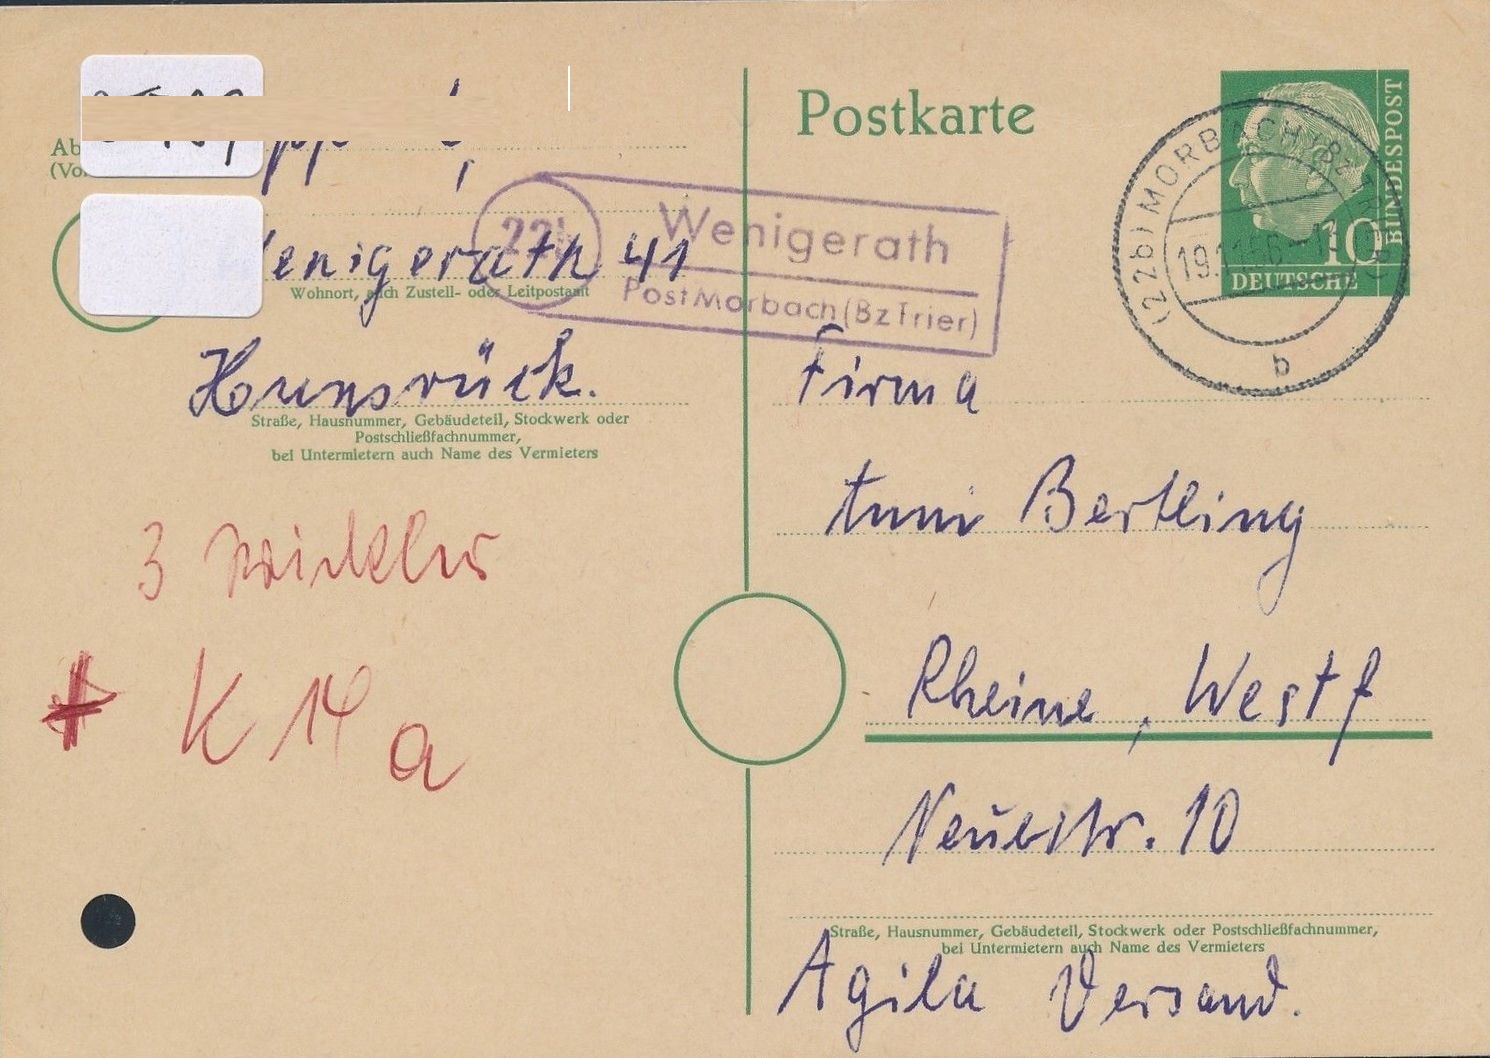 Postkarte
BUNDESPOST
10
DEUTSCHE
(22b) MORBACH (Bz TRIER)
19.11.56-13
b
22b
Wenigerath
Post Morbach (Bz Trier)
Ab
(Vo
Wenigerath 41
Wohnort, auch Zustell- oder Leitpostamt
Hunsrück.
Straße, Hausnummer, Gebäudeteil, Stockwerk oder
Postschließfachnummer,
bei Untermietern auch Name des Vermieters
3
K 14 a
Firma
Bertling
Rheine, Westf
Neuestr. 10
Straße, Hausnummer, Gebäudeteil, Stockwerk oder Postschließfachnummer,
bei Untermietern auch Name des Vermieters
Agila Versand.